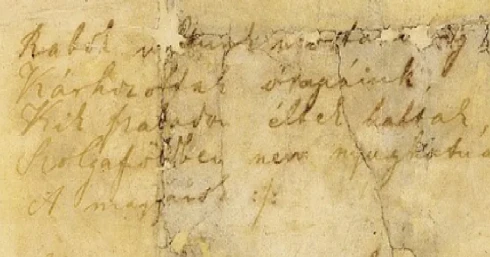 Rabok voltunk mostanig
Kárhozottak ősapáink,
Kik szabadon éltek haltak,
Szolgaföldben nem nyughatnak
A magyarok :/: